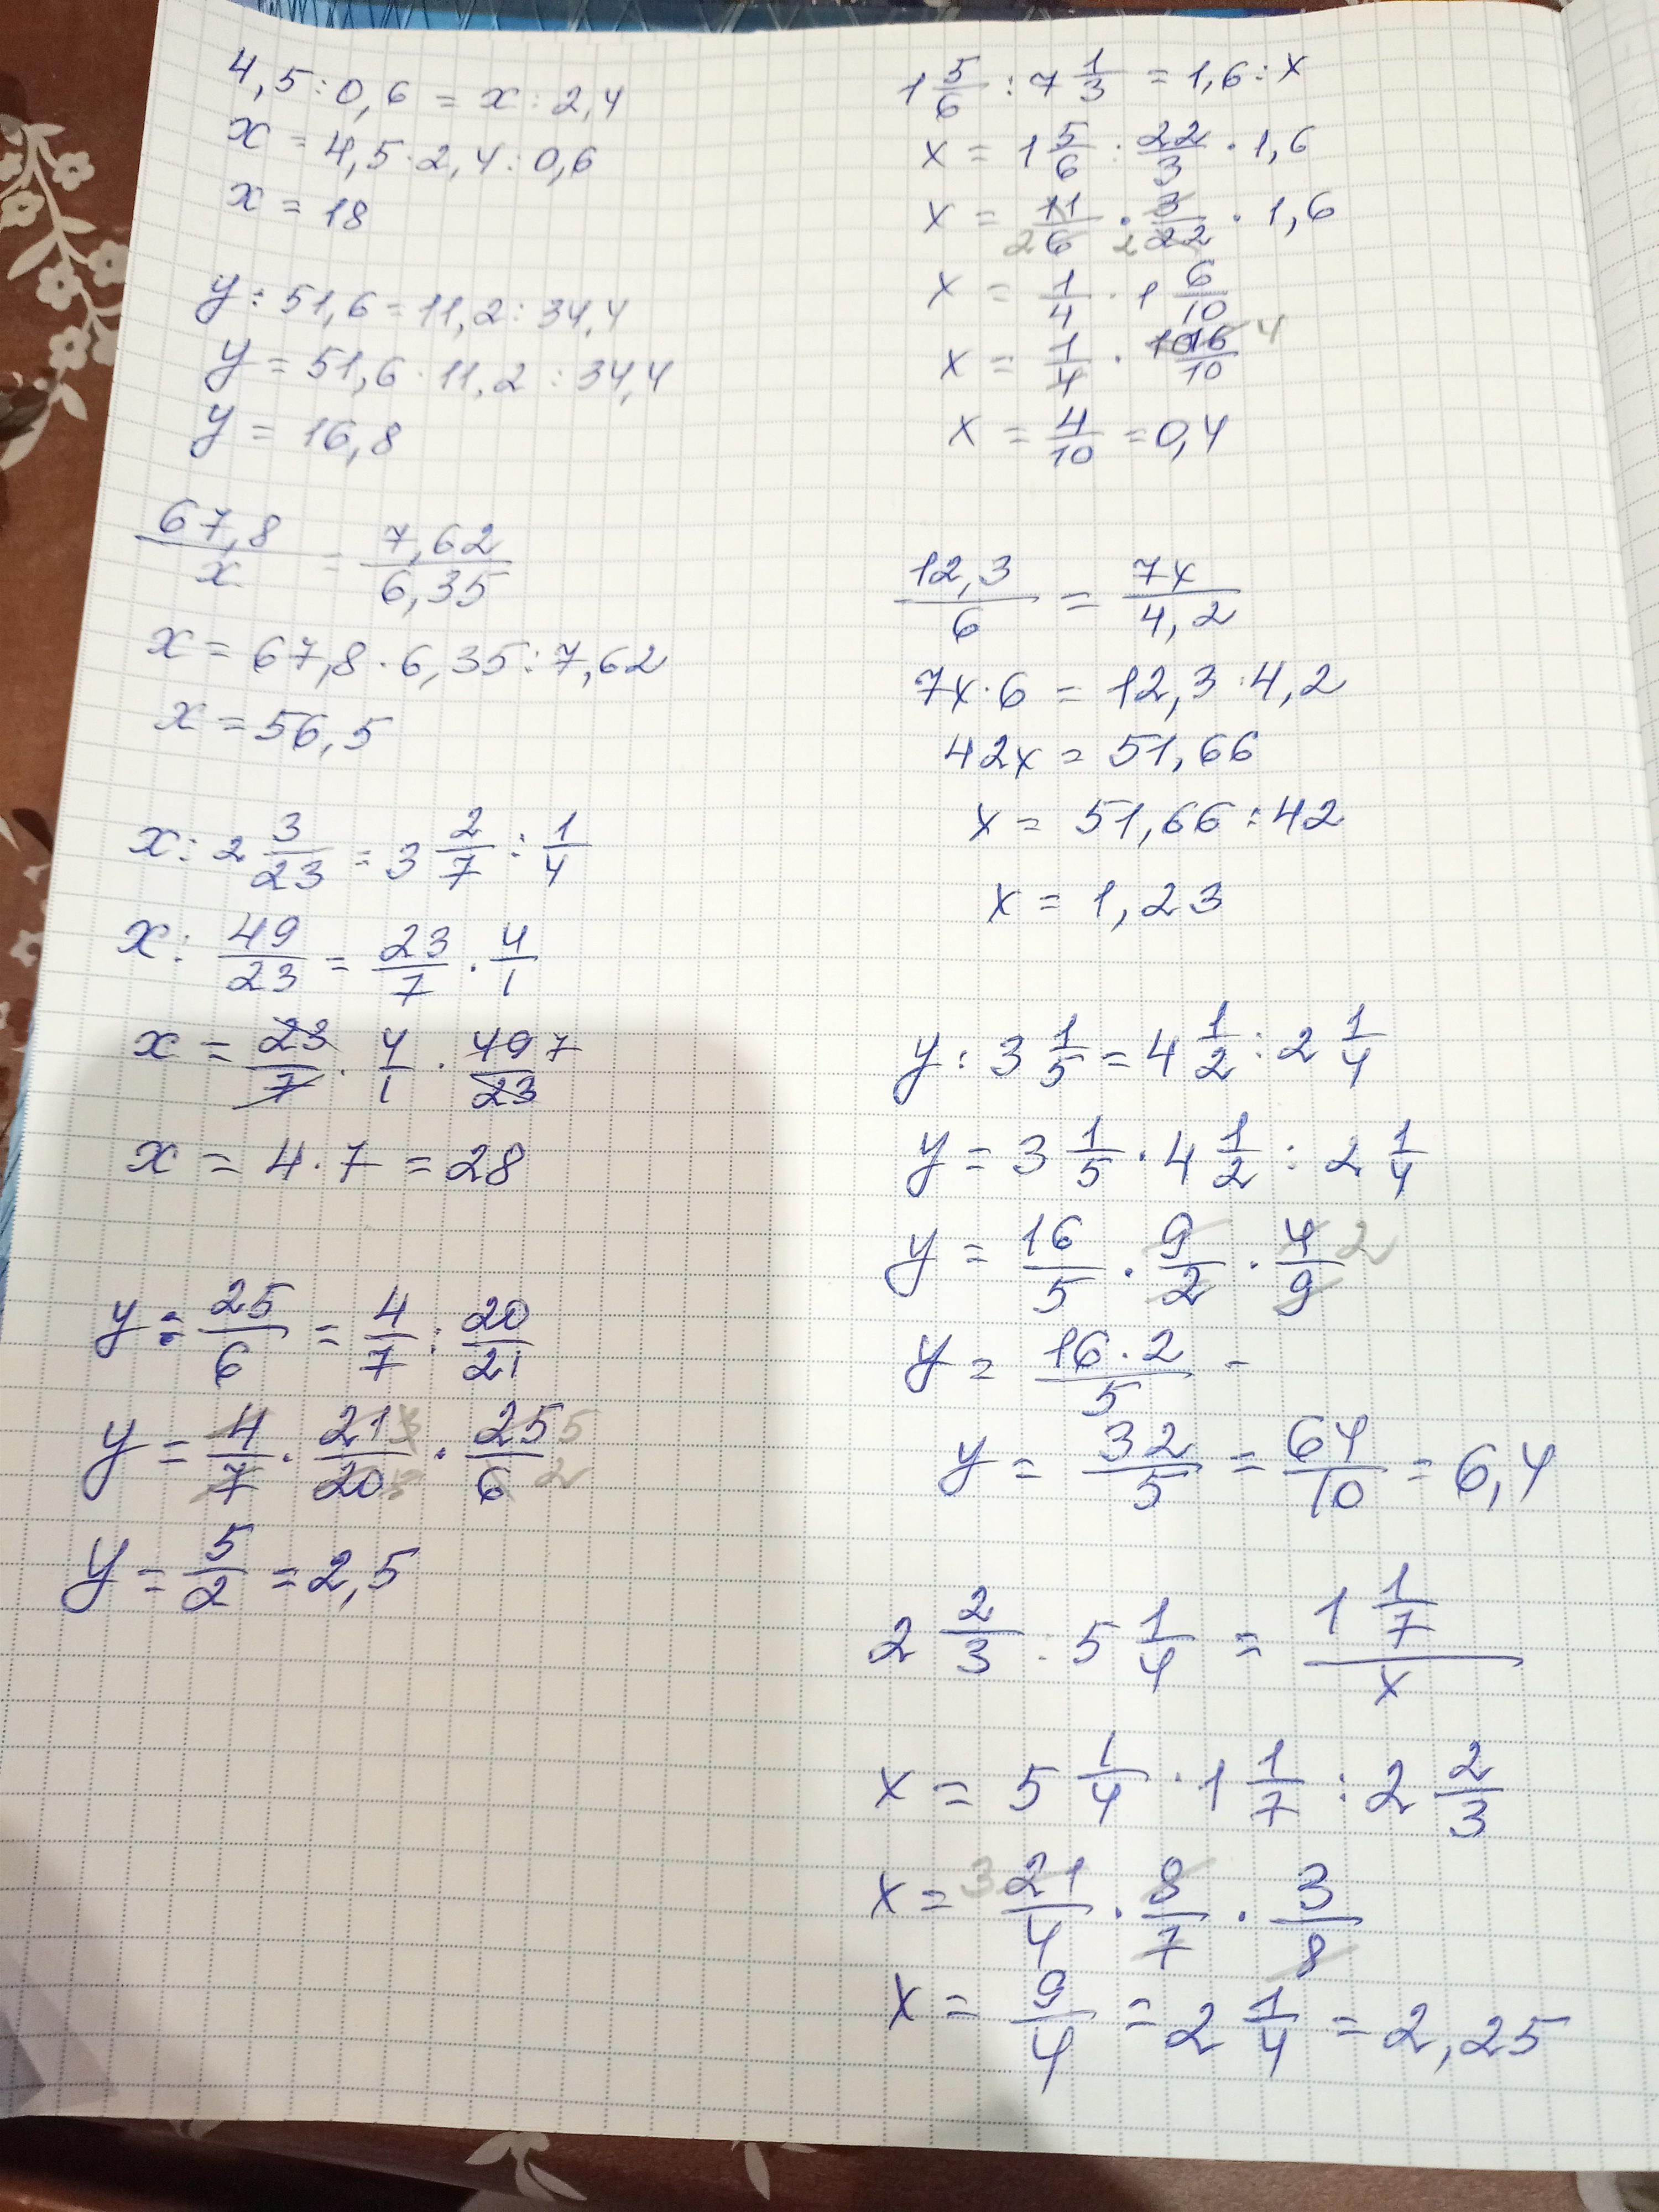 4,5 : 0,6 = x : 2,4
x = 4,5 · 2,4 : 0,6
x = 18
y : 51,6 = 11,2 : 34,4
y = 51,6 · 11,2 : 34,4
y = 16,8
67,8/x = 7,62/6,35
x = 67,8 · 6,35 : 7,62
x = 56,5
x : 2 3/23 = 3 2/7 : 1/4
x : 49/23 = 23/7 · 4/1
x = 23/7 · 4/1 · 49/23 7
x = 4 · 7 = 28
y : 25/6 = 4/7 : 20/21
y = 4/7 · 21/20 · 25/6 5 2
y = 5/2 = 2,5
1 5/6 : 7 1/3 = 1,6 : x
x = 1 5/6 : 22/3 · 1,6
x = 11/6 · 3/22 · 1,6
2 2
x = 1/4 · 1 6/10
x = 1/4 · 16/10 4
x = 4/10 = 0,4
12,3/6 = 7x/4,2
7x · 6 = 12,3 · 4,2
42x = 51,66
x = 51,66 : 42
x = 1,23
y : 3 1/5 = 4 1/2 : 2 1/4
y = 3 1/5 · 4 1/2 : 2 1/4
y = 16/5 · 9/2 · 4/9 2
y = 16 · 2/5 =
y = 32/5 = 64/10 = 6,4
2 2/3 : 5 1/4 = 1 1/7/x
x = 5 1/4 · 1 1/7 : 2 2/3
x = 3 21/4 · 8/7 · 3/8
x = 9/4 = 2 1/4 = 2,25